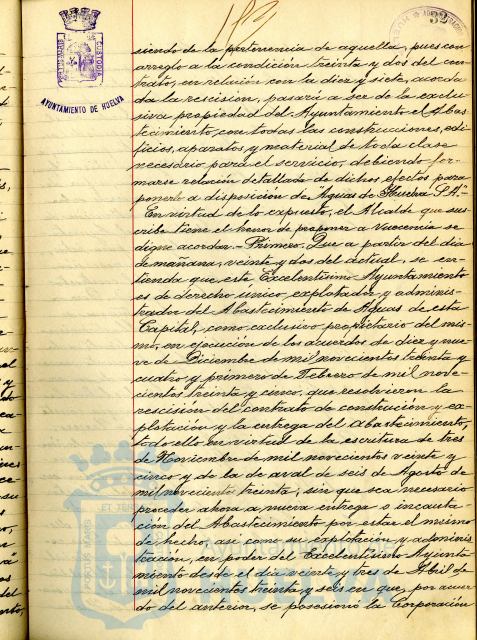 siendo de la pertenencia de aquella, pues con
arreglo a la condición treinta y dos del con-
trato, en relación con la diez y siete, acorda-
da la rescisión, pasaría a ser de la exclu-
siva propiedad del Ayuntamiento el Abas-
tecimiento, con todas las construcciones, edi-
ficios, aparatos y material de toda clase
necesario para el servicio, debiendo for-
marse relación detallada de dichos efectos para
ponerlo a disposición de "Aguas de Huelva S.A."-
En virtud de lo expuesto, el Alcalde que sus-
cribe tiene el honor de proponer a Vuecencia se
digne acordar.- Primero. Que a partir del dia
de mañana, veinte y dos del actual, se en-
tienda que este Excelentísimo Ayuntamiento
es de derecho único explotador y adminis-
trador del Abastecimiento de Aguas de esta
Capital, como exclusivo propietario del mis-
mo, en ejecución de los acuerdos de diez y nue-
ve de Diciembre de mil novecientos treinta y
cuatro y primero de Febrero de mil nove-
cientos treinta y cinco, que resolvieron la
rescisión del contrato de construcción y ex-
plotación y la entrega del Abastecimiento,
todo ello en virtud de la escritura de tres
de Noviembre de mil novecientos veinte y
cinco y de la de aval de seis de Agosto de
mil novecientos treinta, sin que sea necesario
proceder ahora a nueva entrega o incauta-
ción del Abastecimiento por estar el mismo
de hecho, así como su explotación y adminis-
tración, en poder del Excelentísimo Ayunta-
miento desde el dia veinte y tres de Abril de
mil novecientos treinta y seis en que, por acuer-
do del anterior, se posesionó la Corporación
PORTUS MARIS
CUSTODIA
AYUNTAMIENTO DE HUELVA
32